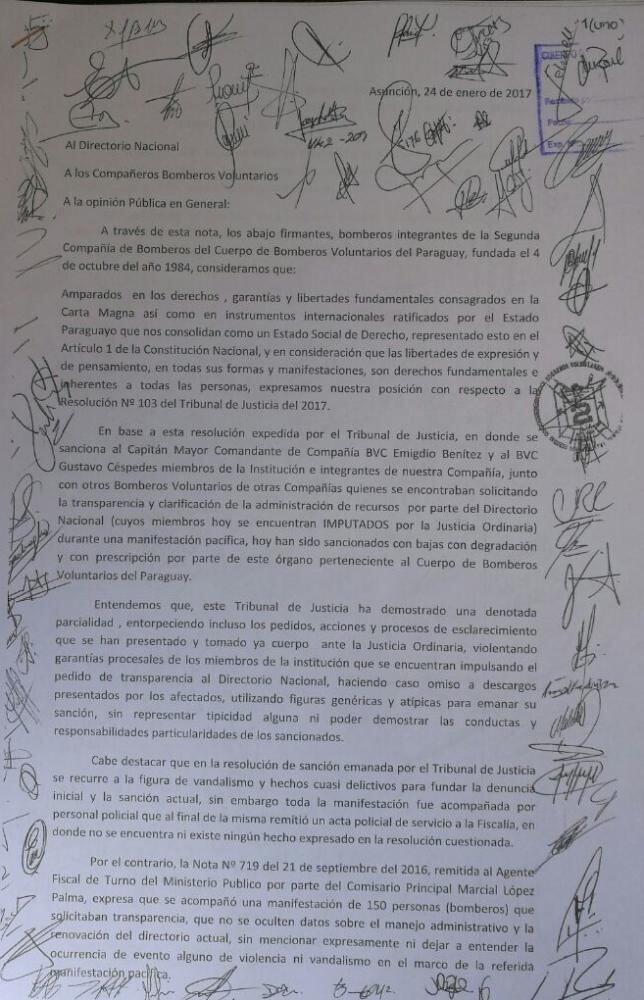 1 (uno)
Asunción, 24 de enero de 2017
Al Directorio Nacional
A los Compañeros Bomberos Voluntarios
A la opinión Pública en General:
A través de esta nota, los abajo firmantes, bomberos integrantes de la Segunda
Compañía de Bomberos del Cuerpo de Bomberos Voluntarios del Paraguay, fundada el 4
de octubre del año 1984, consideramos que:
Amparados en los derechos , garantías y libertades fundamentales consagrados en la
Carta Magna así como en instrumentos internacionales ratificados por el Estado
Paraguayo que nos consolidan como un Estado Social de Derecho, representado esto en el
Artículo 1 de la Constitución Nacional, y en consideración que las libertades de expresión y
de pensamiento, en todas sus formas y manifestaciones, son derechos fundamentales e
inherentes a todas las personas, expresamos nuestra posición con respecto a la
Resolución Nº 103 del Tribunal de Justicia del 2017.
En base a esta resolución expedida por el Tribunal de Justicia, en donde se
sanciona al Capitán Mayor Comandante de Compañía BVC Emigdio Benítez y al BVC
Gustavo Céspedes miembros de la Institución e integrantes de nuestra Compañía, junto
con otros Bomberos Voluntarios de otras Compañías quienes se encontraban solicitando
la transparencia y clarificación de la administración de recursos por parte del Directorio
Nacional (cuyos miembros hoy se encuentran IMPUTADOS por la Justicia Ordinaria)
durante una manifestación pacífica, hoy han sido sancionados con bajas con degradación
y con prescripción por parte de este órgano perteneciente al Cuerpo de Bomberos
Voluntarios del Paraguay.
Entendemos que, este Tribunal de Justicia ha demostrado una denotada
parcialidad , entorpeciendo incluso los pedidos, acciones y procesos de esclarecimiento
que se han presentado y tomado ya cuerpo ante la Justicia Ordinaria, violentando
garantías procesales de los miembros de la institución que se encuentran impulsando el
pedido de transparencia al Directorio Nacional, haciendo caso omiso a descargos
presentados por los afectados, utilizando figuras genéricas y atípicas para emanar su
sanción, sin representar tipicidad alguna ni poder demostrar las conductas y
responsabilidades particularidades de los sancionados.
Cabe destacar que en la resolución de sanción emanada por el Tribunal de Justicia
se recurre a la figura de vandalismo y hechos cuasi delictivos para fundar la denuncia
inicial y la sanción actual, sin embargo toda la manifestación fue acompañada por
personal policial que al final de la misma remitió un acta policial de servicio a la Fiscalía, en
donde no se encuentra ni existe ningún hecho expresado en la resolución cuestionada.
Por el contrario, la Nota Nº 719 del 21 de septiembre del 2016, remitida al Agente
Fiscal de Turno del Ministerio Publico por parte del Comisario Principal Marcial López
Palma, expresa que se acompañó una manifestación de 150 personas (bomberos) que
solicitaban transparencia, que no se oculten datos sobre el manejo administrativo y la
renovación del directorio actual, sin mencionar expresamente ni dejar a entender la
ocurrencia de evento alguno de violencia ni vandalismo en el marco de la referida
manifestación pacífica.